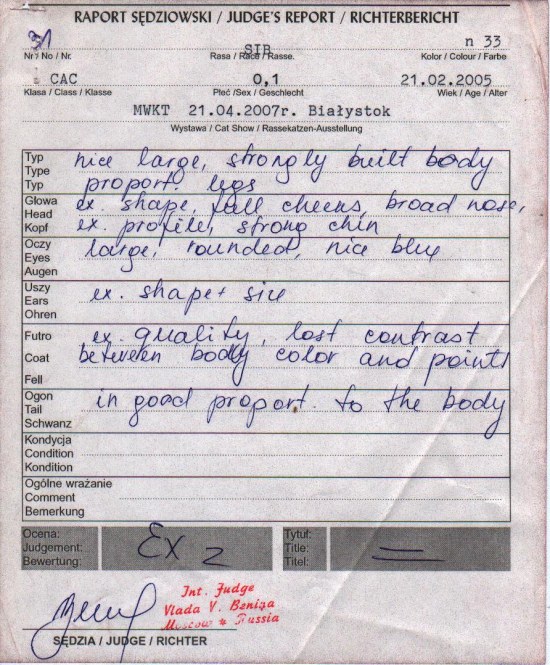 RAPORT SĘDZIOWSKI / JUDGE'S REPORT / RICHTERBERICHT
31 SIB n 33
Nr / No / Nr. Rasa / Race / Rasse. Kolor / Colour / Farbe
CAC 0,1 21.02.2005
Klasa / Class / Klasse Płeć /Sex / Geschlecht Wiek / Age / Alter
MWKT 21.04.2007r. Białystok
Wystawa / Cat Show / Rassekatzen-Ausstellung
Typ nice large, strongly built body
Type
Typ proport. legs
Głowa ex. shape, full cheeks, broad nose,
Head
Kopf ex. profile, strong chin
Oczy large, rounded, nice blue
Eyes
Augen
Uszy
Ears ex. shape + size
Ohren
Futro ex. quality, lost contrast
Coat between body color and points
Fell
Ogon in good proport. to the body
Tail
Schwanz
Kondycja
Condition
Kondition
Ogólne wrażanie
Comment
Bemerkung
Ocena: Tytuł:
Judgement: Ex 2 Title: =
Bewertung: Titel:
Int. Judge
Vlada V. Beniza
Moscow * Russia
SĘDZIA / JUDGE / RICHTER